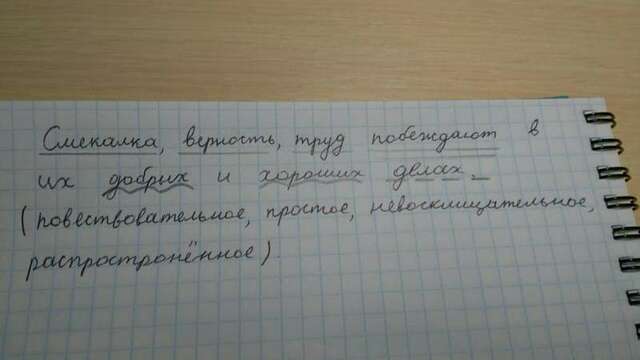 Смекалка, верность, труд побеждают в
их добрых и хороших делах.
(повествовательное, простое, невосклицательное,
распространённое).